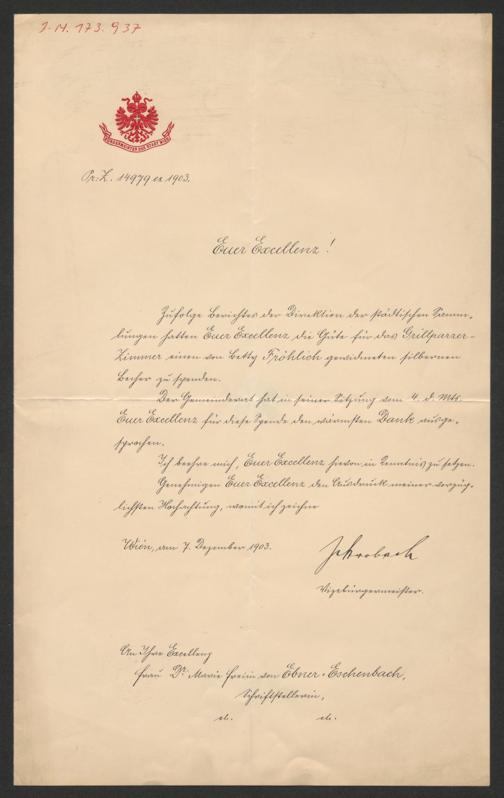 J.N. 173.937
BÜRGERMEISTER DER STADT WIEN
Pr: Z. 14979 ex 1903.
Euer Excellenz!
Zufolge Berichtes der Direktion der städtischen Samm-
lungen hatten Euer Excellenz, die Güte für das Grillparzer-
Zimmer einen von Betty Fröhlich gewidmeten silbernen
Becher zu spenden.
Der Gemeinderat hat in seiner Sitzung vom 4. d. Mts.
Euer Excellenz für diese Spende den wärmsten Dank ausge-
sprochen.
Ich beehre mich, Euer Excellenz hievon in Kenntnis zu setzen.
Genehmigen Euer Excellenz den Ausdruck meiner vorzüg-
lichsten Hochachtung, womit ich zeichne
Wien, am 7. Dezember 1903.
Vizebürgermeister.
An Ihre Excellenz
Frau Dr. Marie Freiin von Ebner-Eschenbach,
Schriftstellerin,
etc. etc.